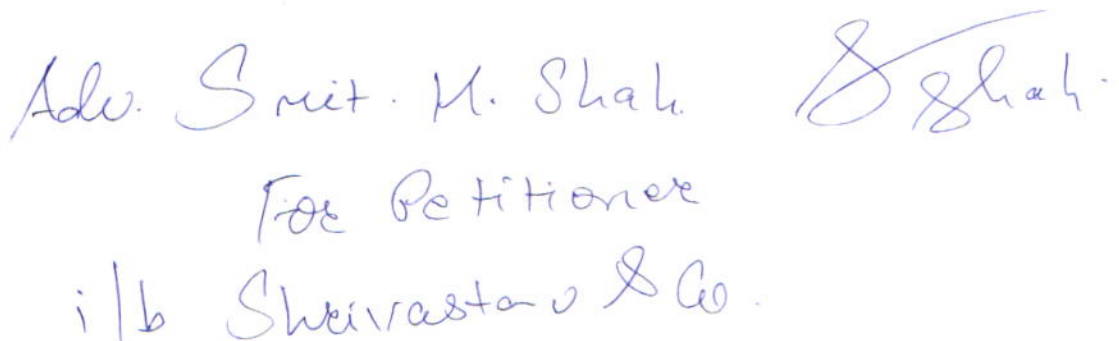 Adv. Smit. M. Shah Sshah.
For Petitioner
i/b Shrivastav & Co.